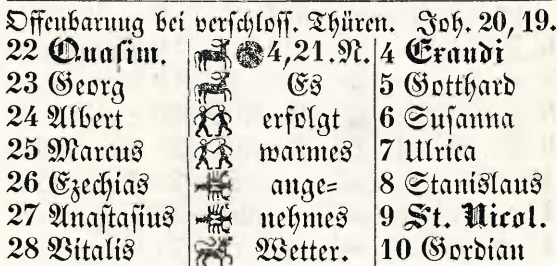 Offenbarung bei verschloss. Thüren. Joh. 20, 19.
22 Quasim. 4,21.N. 4 Exaudi
23 Georg Es 5 Gotthard
24 Albert erfolgt 6 Susanna
25 Marcus warmes 7 Ulrica
26 Ezechias ange= 8 Stanislaus
27 Anastasius nehmes 9 St. Nicol.
28 Vitalis Wetter. 10 Gordian